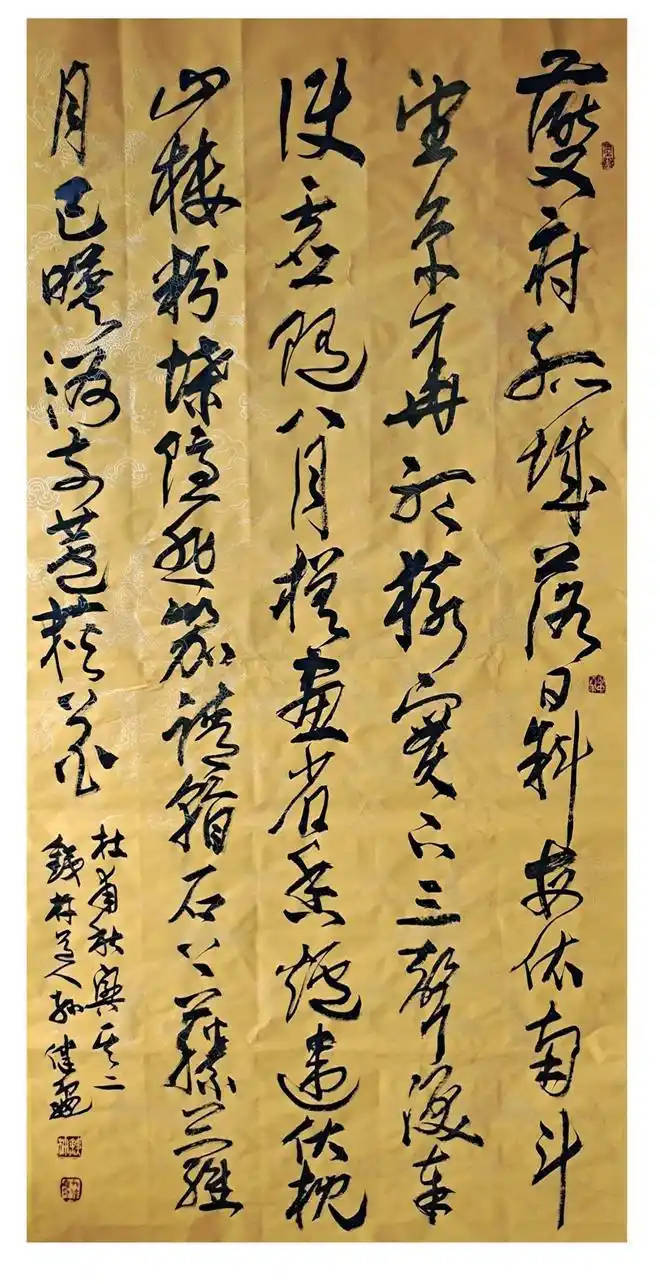 夔府孤城落日斜每依南斗
望京華聽猿實下三聲淚奉
使虛隨八月槎畫省香爐違伏枕
山樓粉堞隱悲笳請看石上藤蘿
月已映洲前蘆荻花
杜甫秋興其二
林道人孫健